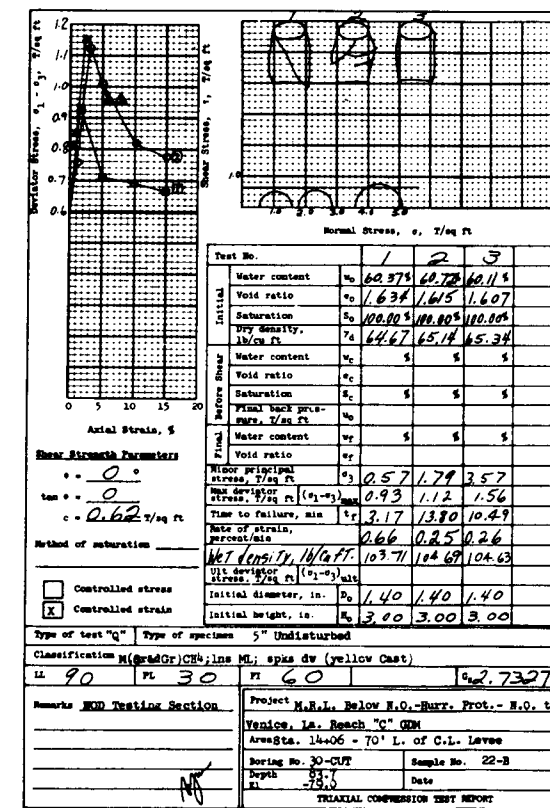 1 2 3
Deviator Stress, σ1 - σ3, T/sq ft
1.2
1.1
1.0
0.9
0.8
0.7
0.6
0 5 10 15 20
Axial Strain, %
Shear Stress, τ, T/sq ft
1.0
1.0 2.0 3.0 4.0 5.0
Normal Stress, σ, T/sq ft
Shear Strength Parameters
φ = 0 °
tan φ = 0
c = 0.62 T/sq ft
Method of saturation
Controlled stress
X Controlled strain
Test No. 1 2 3
Initial
Water content w0 60.37% 60.72% 60.11%
Void ratio e0 1.634 1.615 1.607
Saturation S0 100.00% 100.00% 100.00%
Dry density, lb/cu ft γd 64.67 65.14 65.34
Before Shear
Water content wc % % %
Void ratio ec
Saturation Sc % % %
Final back pressure, T/sq ft u0
Final
Water content wf % % %
Void ratio ef
Minor principal stress, T/sq ft σ3 0.57 1.79 3.57
Max deviator stress, T/sq ft (σ1-σ3)max 0.93 1.12 1.56
Time to failure, min tf 3.17 13.80 10.49
Rate of strain, percent/min 0.66 0.25 0.26
Wet density, lb/cu ft. 103.71 104.69 104.63
Ult deviator stress, T/sq ft (σ1-σ3)ult
Initial diameter, in. D0 1.40 1.40 1.40
Initial height, in. H0 3.00 3.00 3.00
Type of test "Q" Type of specimen 5" Undisturbed
Classification M(&rdGr)CH4; lns ML; spks dw (yellow Cast)
LL 90 PL 30 PI 60 Gs 2.7327
Remarks NOD Testing Section
Project M.R.L. Below N.O.-Hurr. Prot.- N.O. t
Venice, La. Reach "C" GDM
Area Sta. 14+06 - 70' L. of C.L. Levee
Boring No. 30-CUT Sample No. 22-B
Depth 83.7
El -79.0 Date
TRIAXIAL COMPRESSION TEST REPORT